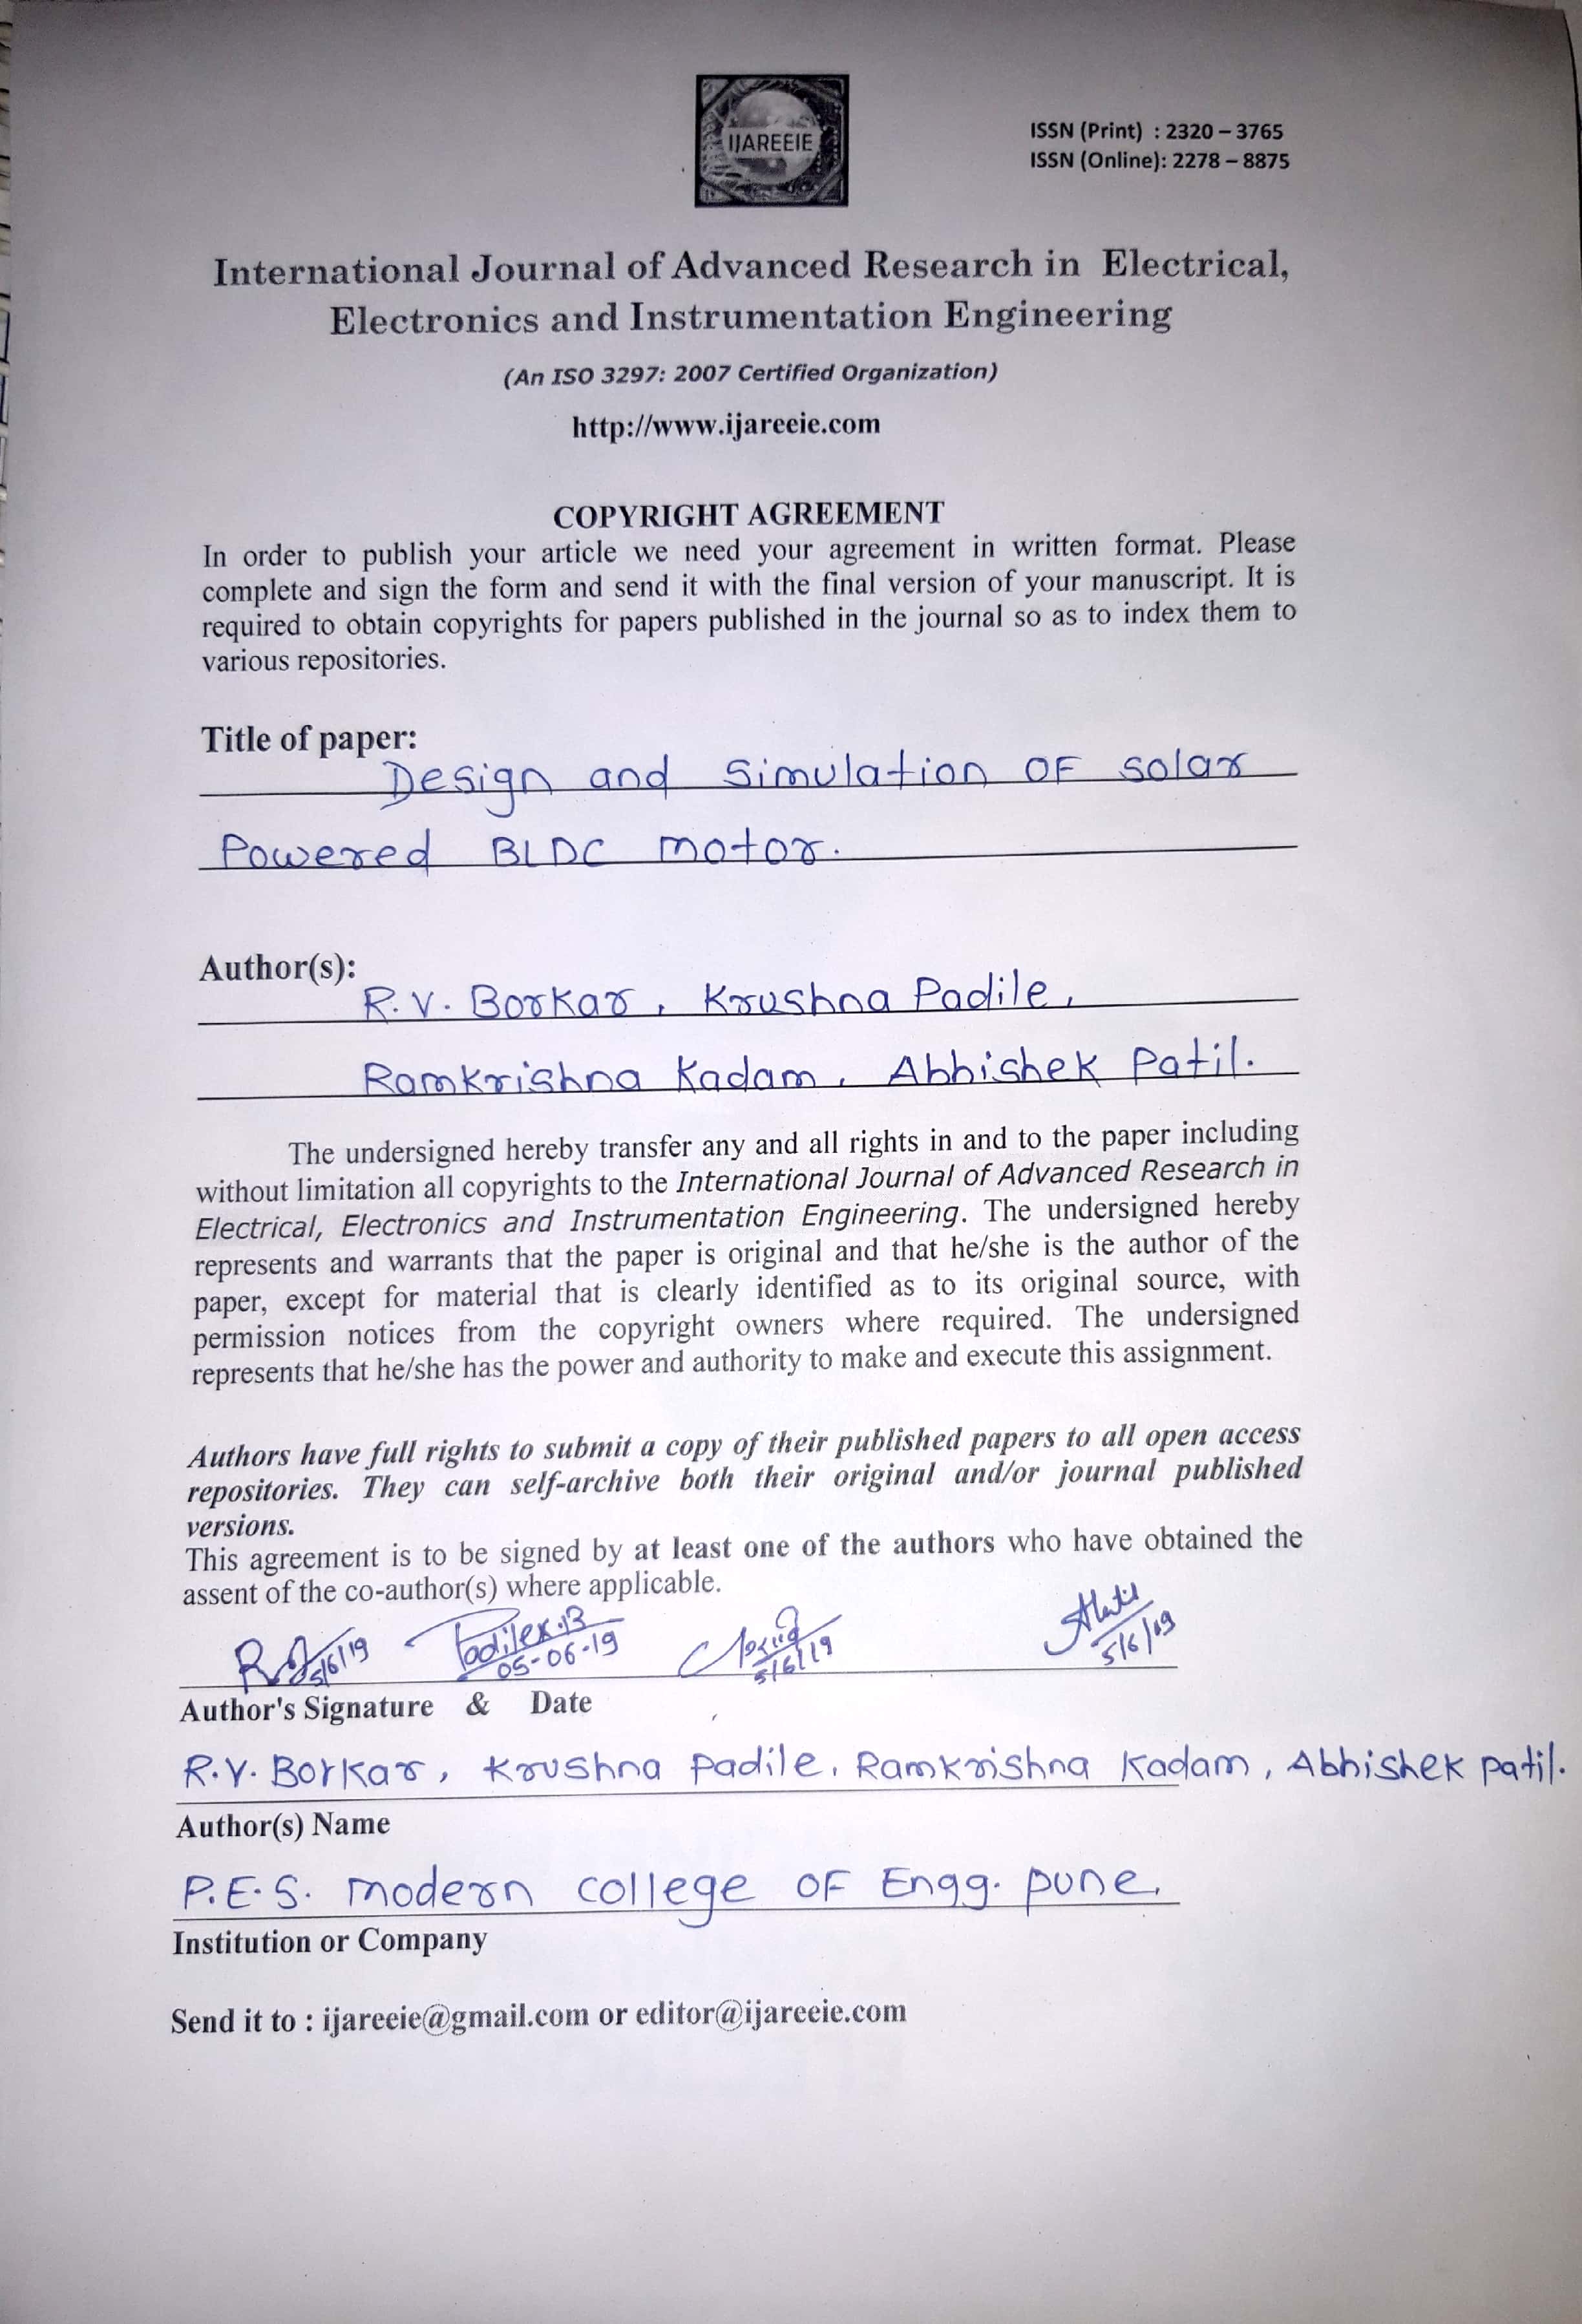 IJAREEIE
ISSN (Print) : 2320 – 3765
ISSN (Online): 2278 – 8875
International Journal of Advanced Research in Electrical,
Electronics and Instrumentation Engineering
(An ISO 3297: 2007 Certified Organization)
http://www.ijareeie.com
COPYRIGHT AGREEMENT
In order to publish your article we need your agreement in written format. Please
complete and sign the form and send it with the final version of your manuscript. It is
required to obtain copyrights for papers published in the journal so as to index them to
various repositories.
Title of paper:
Design and Simulation OF Solar
Powered BLDC motor.
Author(s):
R.V. Borkar, Krushna Padile,
Ramkrishna Kadam, Abhishek Patil.
The undersigned hereby transfer any and all rights in and to the paper including
without limitation all copyrights to the International Journal of Advanced Research in
Electrical, Electronics and Instrumentation Engineering. The undersigned hereby
represents and warrants that the paper is original and that he/she is the author of the
paper, except for material that is clearly identified as to its original source, with
permission notices from the copyright owners where required. The undersigned
represents that he/she has the power and authority to make and execute this assignment.
Authors have full rights to submit a copy of their published papers to all open access
repositories. They can self-archive both their original and/or journal published
versions.
This agreement is to be signed by at least one of the authors who have obtained the
assent of the co-author(s) where applicable.
5/6/19 05-06-19 5/6/19 5/6/19
Author's Signature & Date
R.V. Borkar, Krushna Padile, Ramkrishna Kadam, Abhishek patil.
Author(s) Name
P.E.S. modern college OF Engg. pune.
Institution or Company
Send it to : ijareeie@gmail.com or editor@ijareeie.com